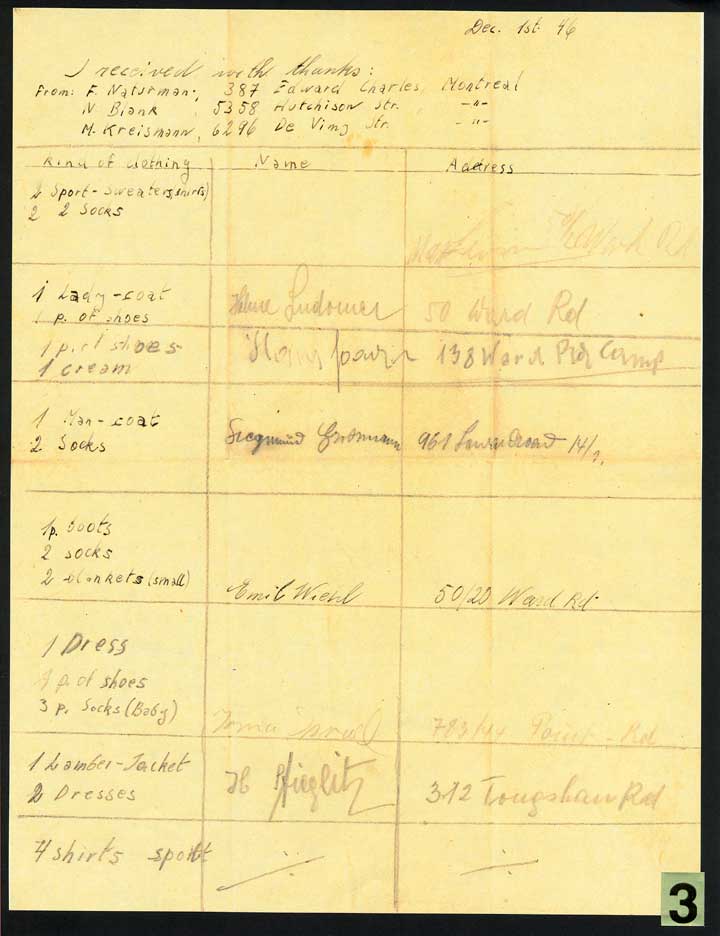 Dec. 1st 46
I received with thanks:
From: F. Naturman, 387 Edward Charles, Montreal
N. Blank, 5358 Hutchison Str. -"-
M. Kreismann, 6296 De Vimy Str. -"-
Kind of clothing Name Address
2 Sport-Sweaters(shirts)
2 2 Socks
Ward Rd
1 Lady-coat
1 p. of shoes
50 Ward Rd
1 p. of shoes
1 cream
138 Ward Rd Camp
1 Man-coat
2 Socks
Siegmund 961 14/
1p. boots
2 socks
2 blankets (small)
Emil Wiehl 50/20 Ward Rd
1 Dress
1 p of shoes
3 p. Socks (Baby)
Point-Rd
1 Lamber-Jacket
2 Dresses
H Stieglitz 312 Tongshan Rd
4 shirts sport
3